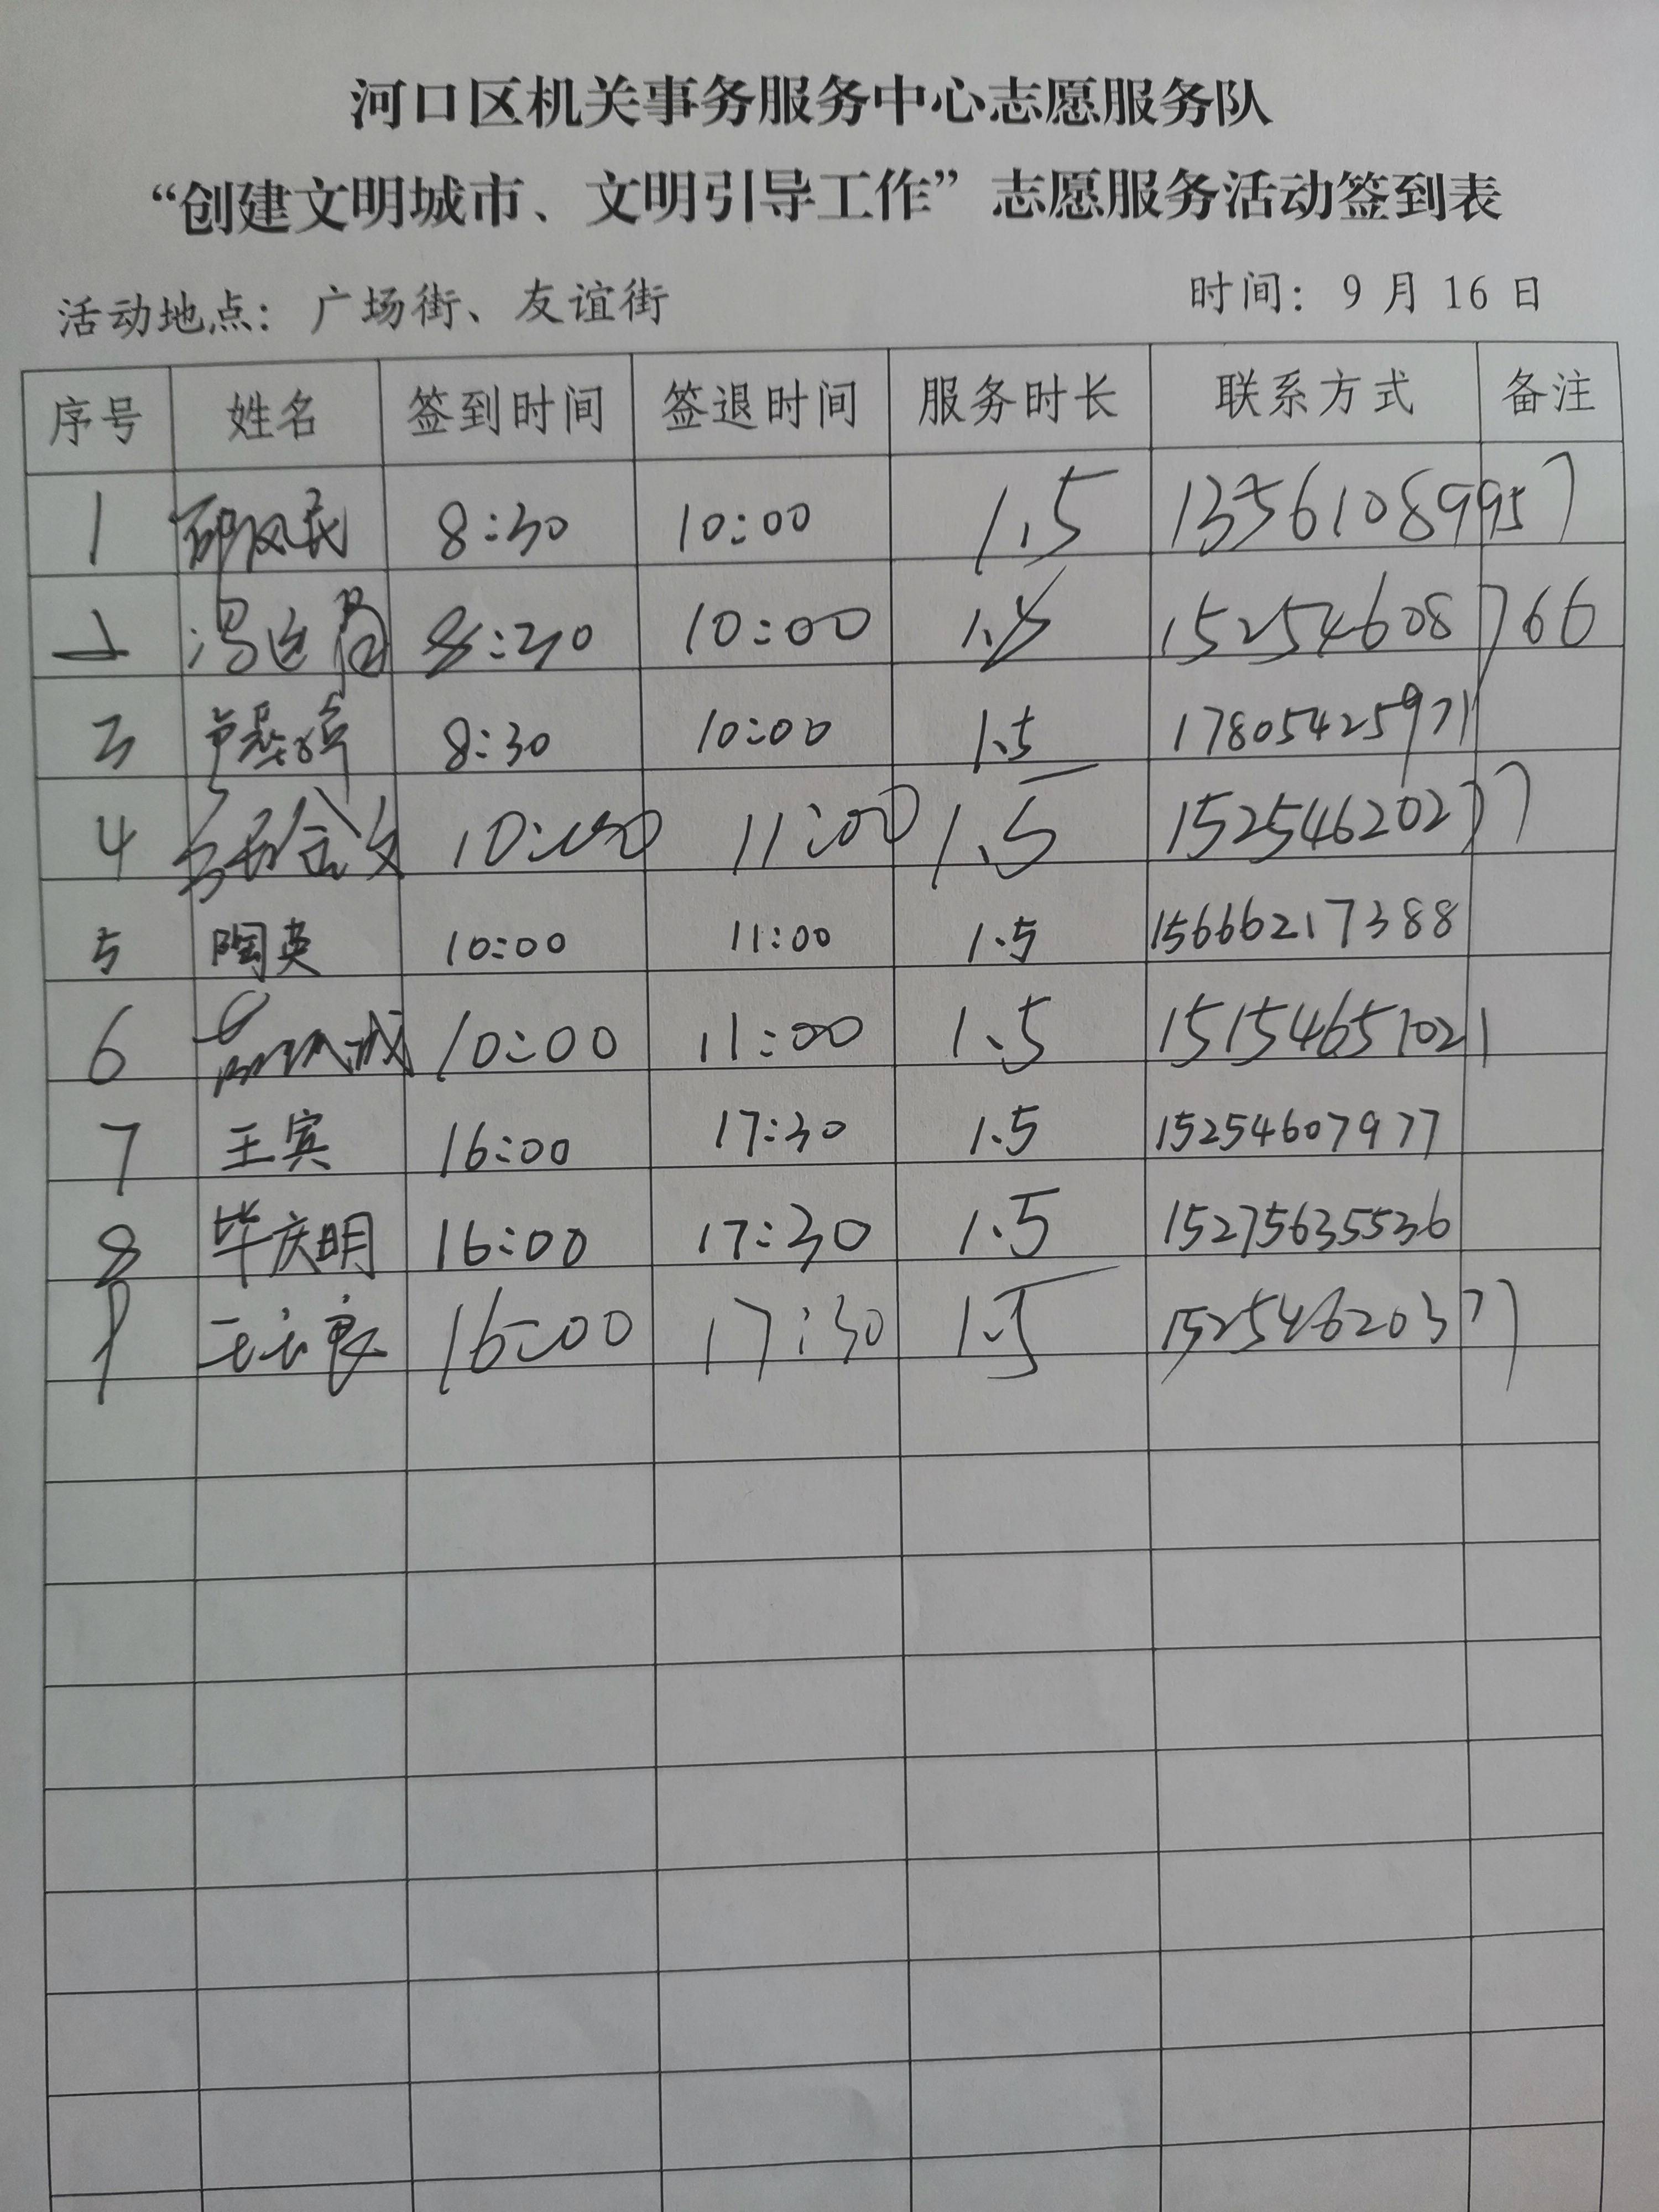 河口区机关事务服务中心志愿服务队
“创建文明城市、文明引导工作”志愿服务活动签到表
活动地点：广场街、友谊街 时间：9 月 16 日
序号 姓名 签到时间 签退时间 服务时长 联系方式 备注
1 8:30 10:00 1.5 13561089957
2 8:30 10:00 1.5 15254608766
3 8:30 10:00 1.5 17805425971
4 10:00 11:00 1.5 15254620277
5 陶英 10:00 11:00 1.5 15666217388
6 10:00 11:00 1.5 15154651021
7 王宾 16:00 17:30 1.5 15254607977
8 毕庆明 16:00 17:30 1.5 15275635536
9 16:00 17:30 1.5 15254620377